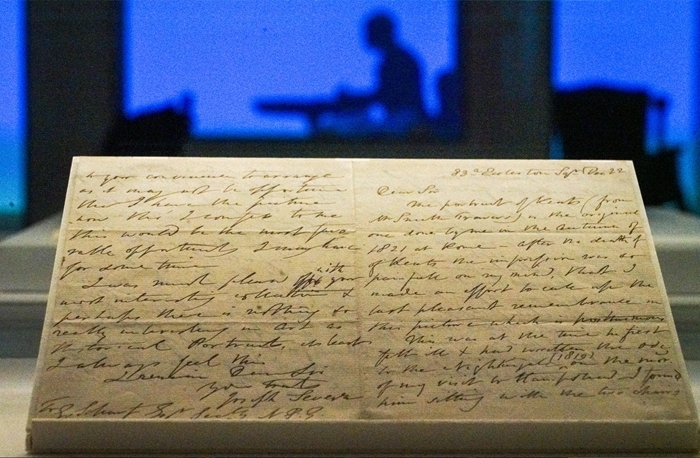 to your convenience to arrange
as it may not be opportune
that I have the picture
now tho' I confess to me
this would be the most favo
rable opportunity I may have
for some time
I was much pleased with your
most interesting collection &
perhaps there is nothing so
really interesting in Art as
Historical Portraits, at least
I always feel this
I remain Dear Sir
Yours truly
Joseph Severn
To G. Scharf Esqr Secty N.P.G
83a Eccleston Sqr Dec 22
Dear Sir
The portrait of Keats (from
Mr Smith Travers) is the original
one done by me in the autumn of
1821 at Rome after the death of
Keats the impression was so
painfull on my mind, that I
made an effort to call up the
last pleasant remembrance in
this picture which is posthumous
This was at the time he first
fell ill & had written the Ode
to the Nightingale (1819) on the morn
of my visit to Hampstead I found
him sitting with the two chairs